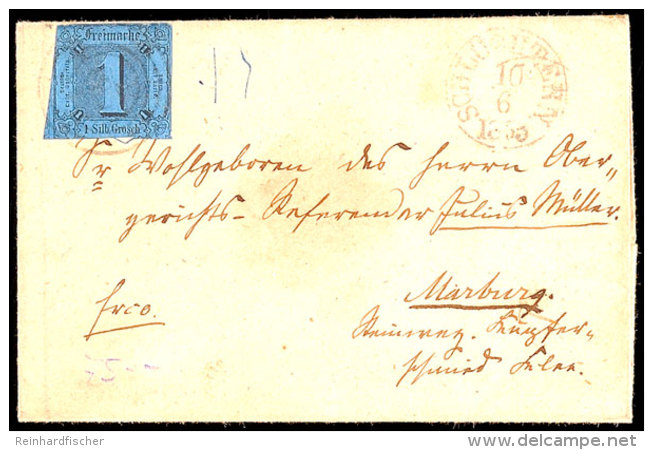 Freimarke
1
1 Silb. Grosch.
10
6
1855
Sr Wohlgeboren des Herrn Ober-
gerichts-Referendar Julius Müller.
Marburg.
frco.
Steinweg. Kupfer-
schmied
Reinhardfischer
delcampe.net